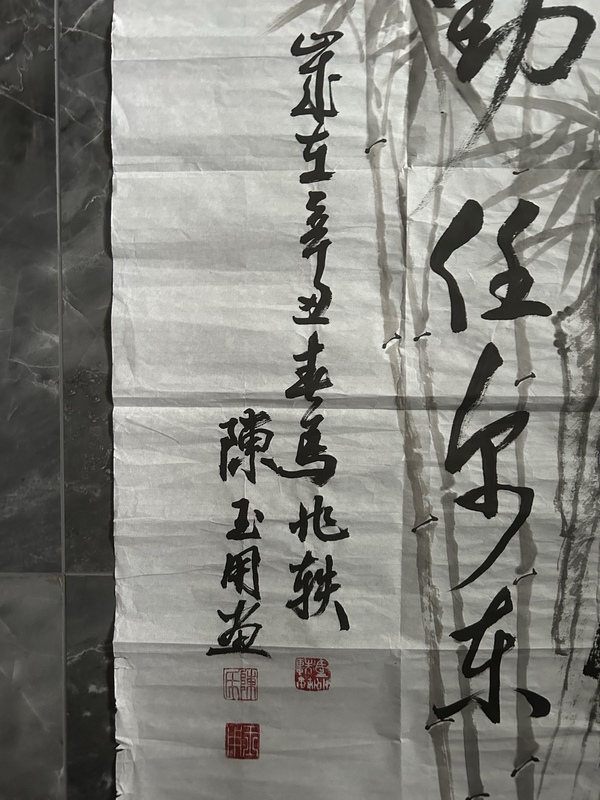 劲任尔东
岁在辛丑春马兆轶
陳玉用画